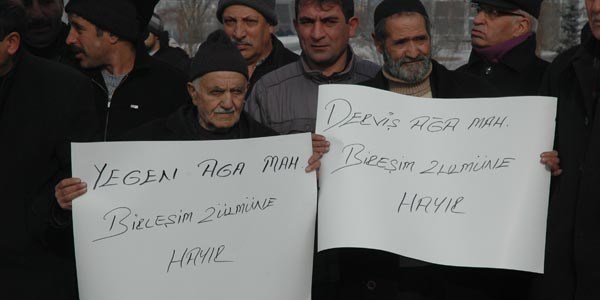 YEGEN AGA MAH.
BİRLEŞİM ZÜLMÜNE
HAYIR
DERVİŞ AĞA MAH.
BİRLEŞİM ZULMÜNE
HAYIR